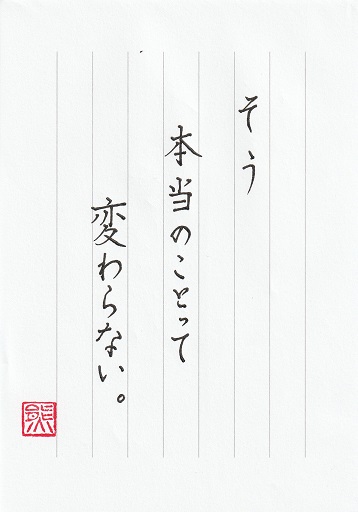 そう
本当のことって
変わらない。